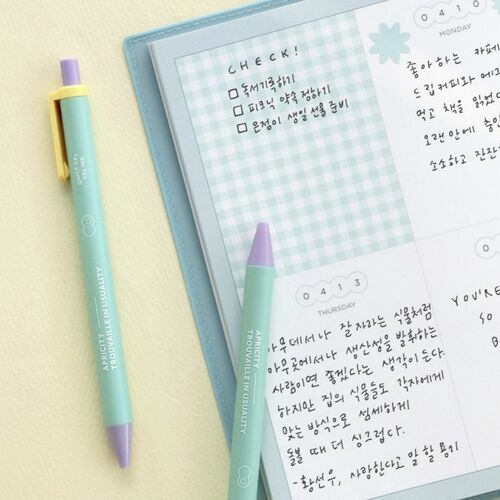 CHECK!
독서기록하기
피크닉 약속 정하기
은정이 생일 선물 준비
0410
MONDAY
좋아하는 카페
드립커피와
먹고 책을
오랜만에
소소하고 잔잔
0413
THURSDAY
아무데서나 잘 자라는 식물처럼
아무곳에서나 생산성을 발휘하는
사람이면 좋겠다는 생각이 든다.
하지만 집의 식물들도 각자에게
맞는 방식으로 섬세하게
돌볼 때 더 싱그럽다.
- 황선우, 사랑한다고 말할 용기
YOU'RE
SO
B
QUICK DRY
GEL INK
APRICITY
TROUVAILLE IN USUALITY
APRICITY
TROUVAILLE IN USUALITY